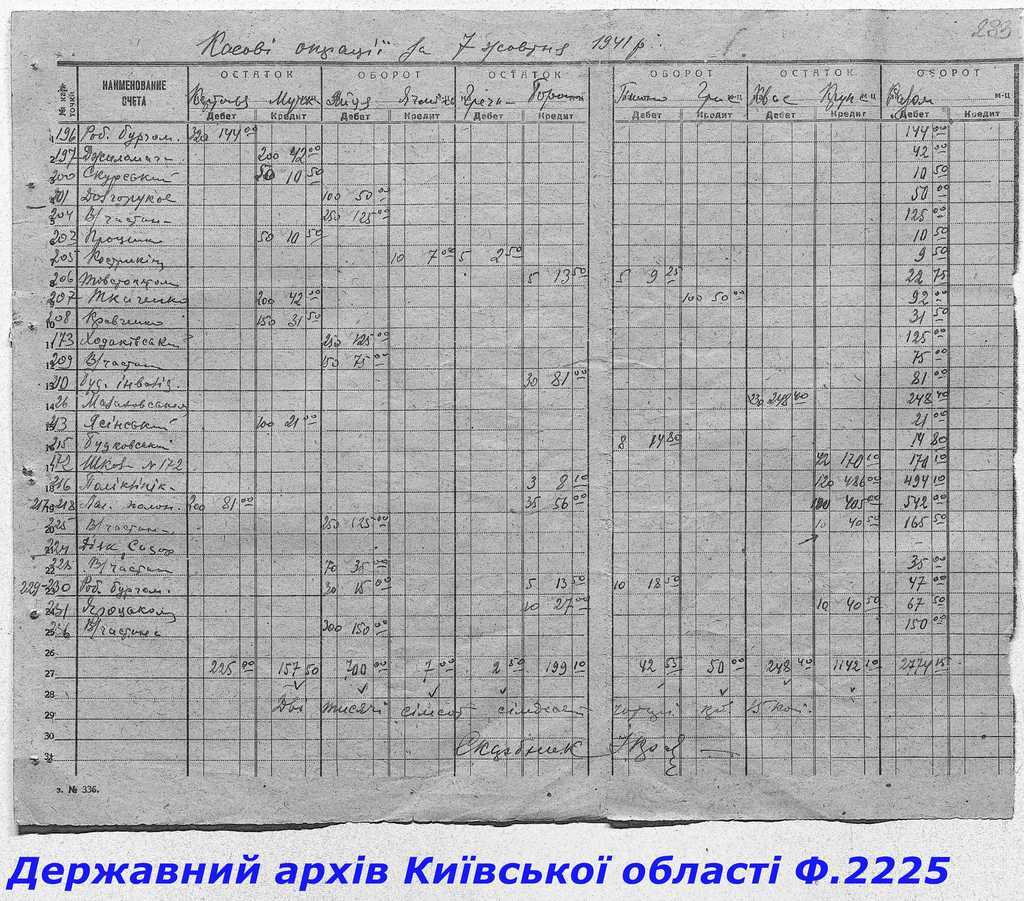 293
Касові операції за 7 жовтня 1941 р.
№ кар-точки НАИМЕНОВАНИЕ СЧЕТА ОСТАТОК ОБОРОТ ОСТАТОК ОБОРОТ ОСТАТОК ОБОРОТ
Картопля Мука Ячмінь Гречка Горох Пшоно Квас Цукор Разом м-ц
Дебет Кредит Дебет Кредит Дебет Кредит Дебет Кредит Дебет Кредит Дебет Кредит
1 196 Роб. бургом. 320 144 00 144 00
2 197 200 42 00 42 00
3 200 Скурський 50 10 50 10 50
4 201 Долгорукое 100 50 00 50 00
5 204 В/частин 250 125 00 125 00
6 202 Проценко 50 10 50 10 50
7 205 10 7 00 5 2 50 9 50
8 206 5 13 50 5 9 25 22 75
9 207 Ткаченко 200 42 00 100 50 00 92 00
10 208 Кравченко 150 31 50 31 50
11 173 Ходаківський 250 125 00 125 00
12 209 В/частин 150 75 00 75 00
13 210 буд. інвалід. 30 81 00 81 00
14 26 248 40 248 40
15 Ясінський 100 21 00 21 00
16 215 Будковский 8 14 80 14 80
17 172 Школ. № 172 42 170 10 170 10
18 216 Поліклінік. 3 8 10 120 486 00 494 10
19 217-218 200 81 00 35 56 00 100 405 00 542 00
20 225 В/частин 250 125 00 10 40 50 165 50
21 224
22 228 В/частин 70 35 00 35 00
23 229-230 Роб. бургом. 30 15 00 5 13 50 10 18 50 47 00
24 231 10 27 00 10 40 50 67 50
25 236 В/частина 300 150 00 150 00
26
27 225 00 157 50 700 00 7 00 2 50 199 10 42 55 50 00 248 40 1142 10 2774 15
28
29 Дві тисячі сімсот сімдесят чотирі крб 15 коп.
30
31 Скарбник
з. № 336.
Державний архів Київської області Ф.2225